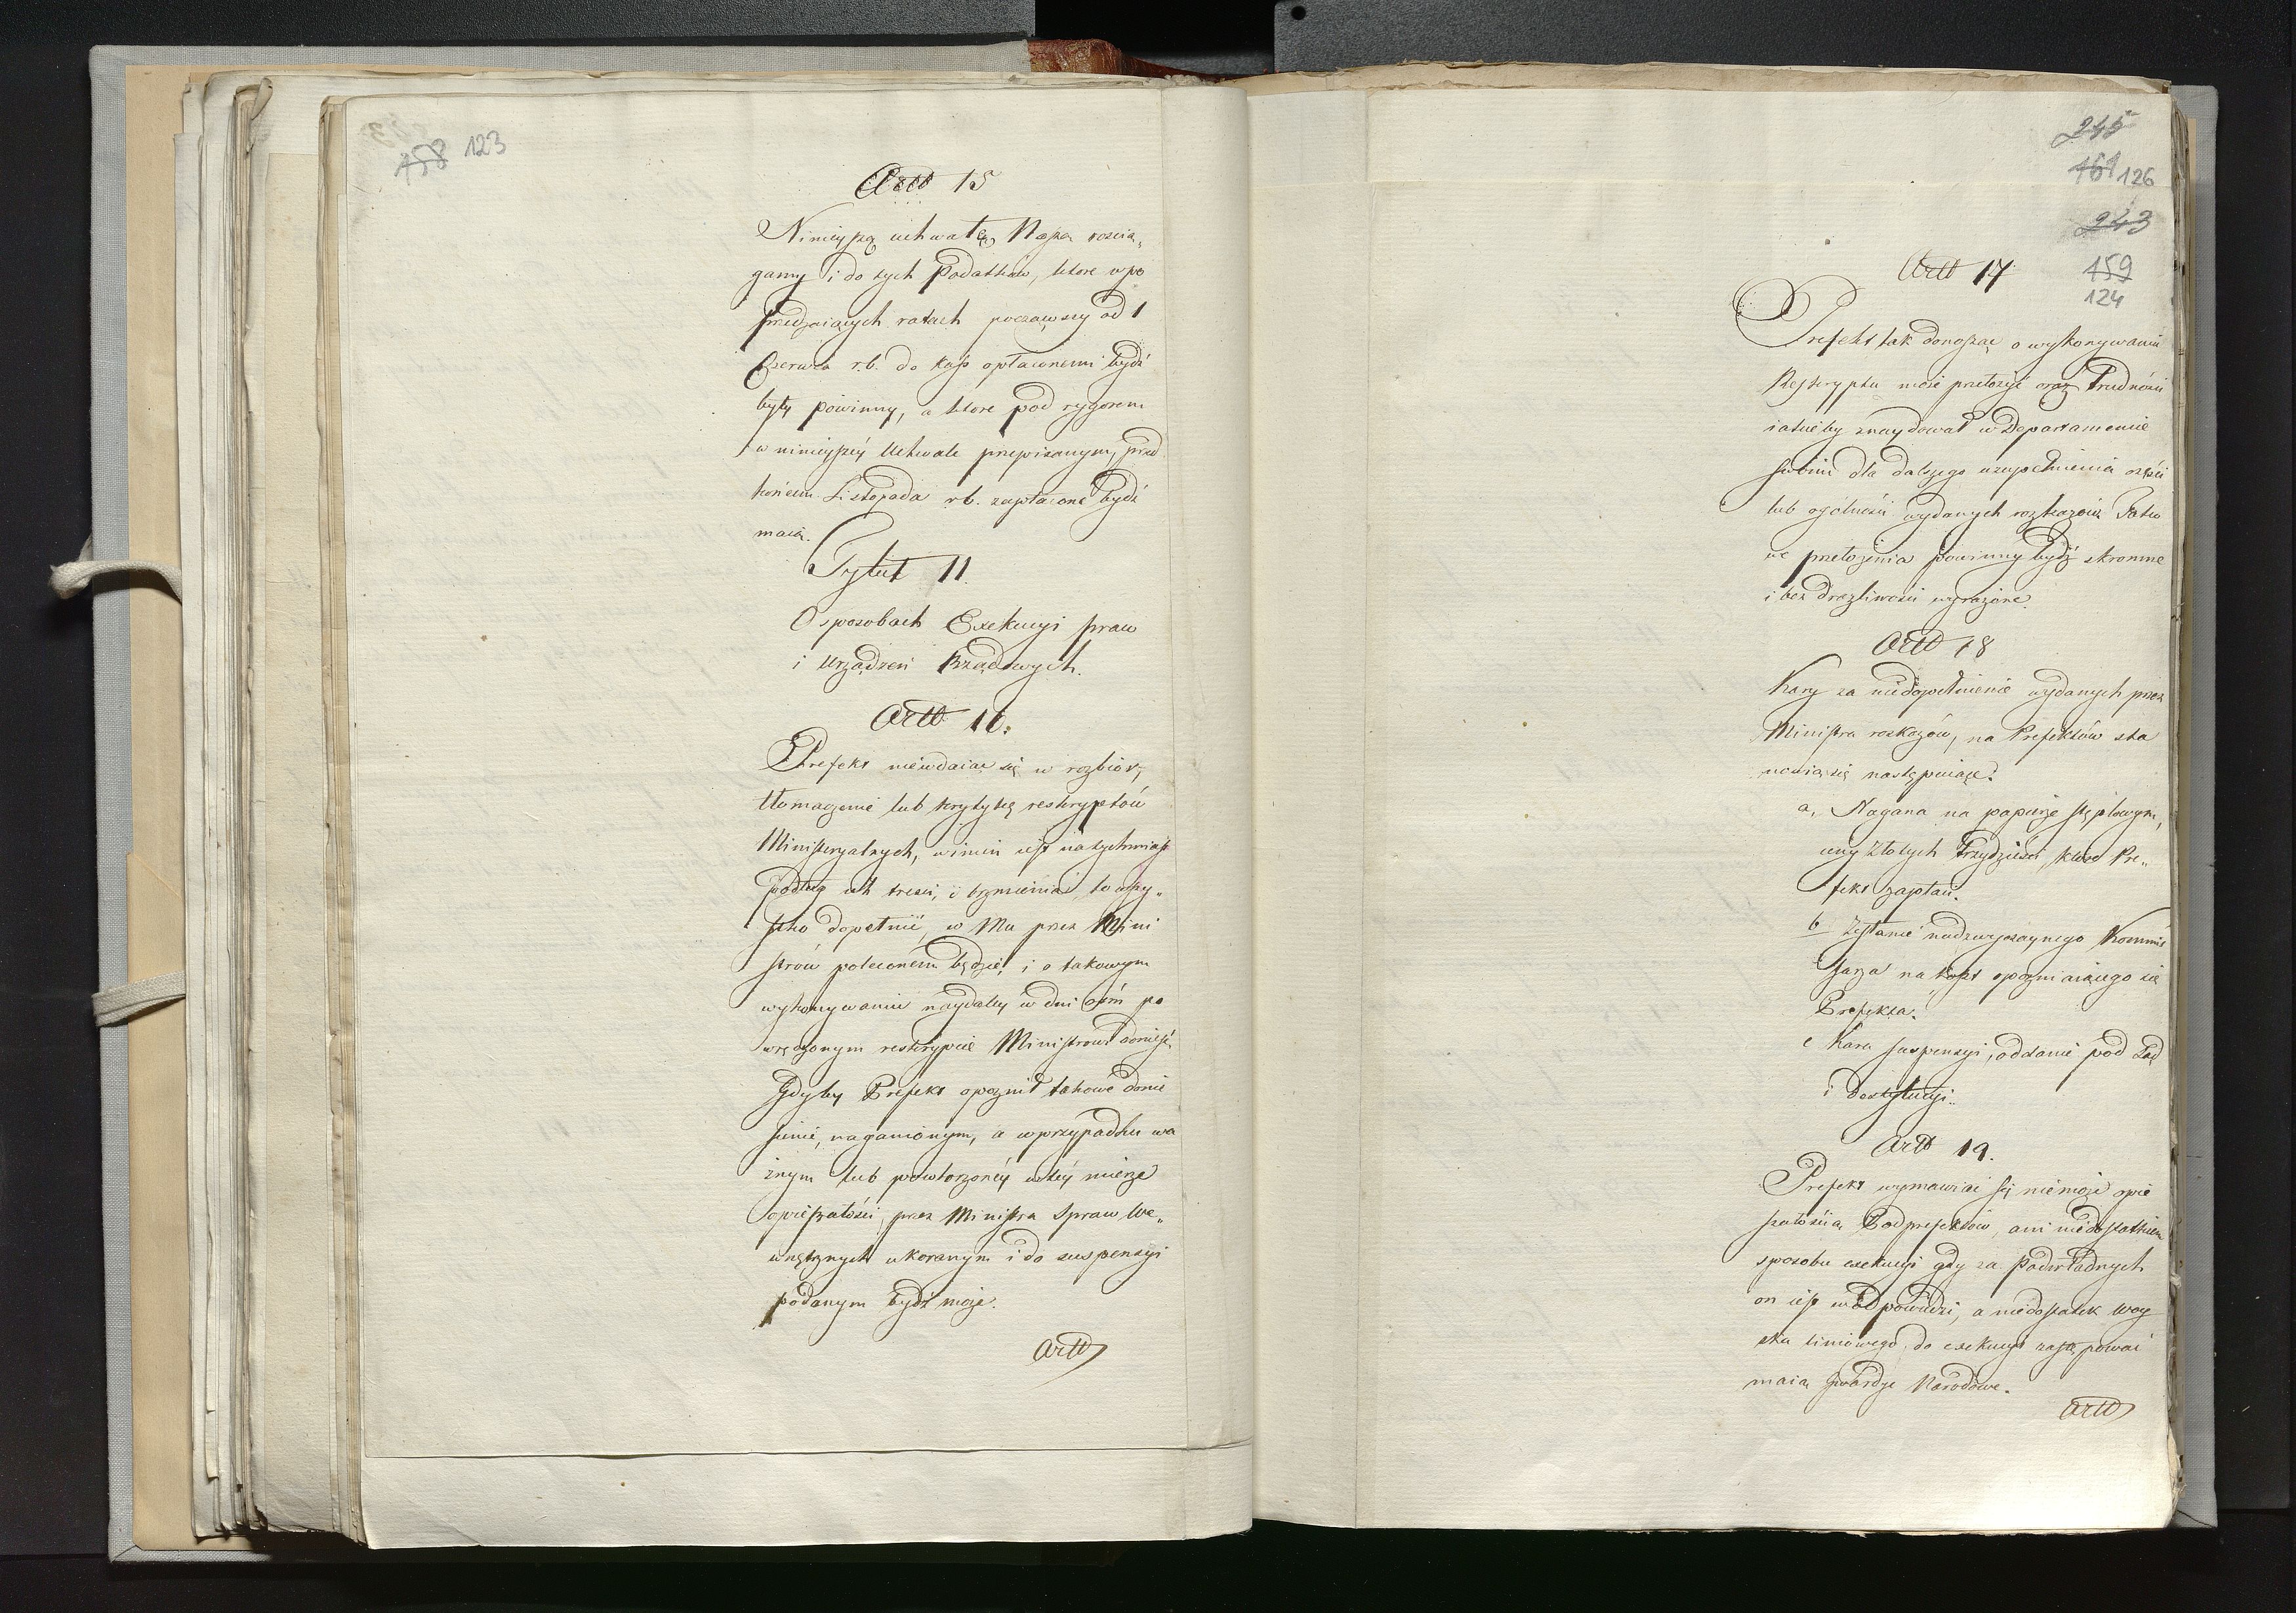 158 123
Artt 15
Ninieyszą uchwałę Naszą roscią„
gamy i do tych Podatków, ktore w po
przedzaiących ratach począwszy od 1
Czerwca r.b. do kass opłaconemi bydź
były powinny, a ktore pod rygorem
w ninieyszéy Uchwale przepisanym, przed
końcem Listopada r.b. zapłacone bydź
maią.
Tytuł 11.
O sposobach Exekucyi praw
i Urządzeń Rządowych.
Artt 16.
Prefekt niewdaiąc się w rozbiór,
tłomaczenie lub krytykę reskryptów
Ministeryalnych, winien iest natychmiast
podług ich treści, i brzmienia, to wszy„
stko dopełnić, co Mu przez Mini
strów poleconem będzie, i o takowym
wykonywaniu naydaley w dni ośm po
wręczonym reskrypcie Ministrowi donieść.
Gdyby Prefekt opoznił takowe donie
sienie, naganionym, a w przypadku wa
żnym lub powtorzonéy w téy mierze
opieszałości, przez Ministra Spraw We„
wnętrznych ukaranym i do suspensyi
podanym bydź może.
Artt
245
161 126
243
159
124
Artt 17
Prefekt tak donosząc o wykonywaniu
Reskryptu może przełożyć oraz Trudności
iakieby znaydował w Departamencie
swoim dla dalszego uzupełnienia części
lub ogólności wydanych rozkazów Tako
we przełożenia powinny bydź skromne
i bez drażliwości wyrażone.
Artt 18
Kary za niedopełnienie wydanych przez
Ministra rozkazów, na Prefektów sta
nowią się następuiące:
a, Nagana na papierze stęplowym,
ceny Złotych Trzydzieści, ktore Pre„
fekt zapłaci.
b Zesłanie nadzwyczaynego Kommis
sarza na koszt opozniaiącego się
Prefekta.
c Kara suspensyi, oddanie pod Sąd
i destytucyi.
Artt 19.
Prefekt wymawiać się nie może opie
szałością Podprefektów, ani niedostatkiem
sposobu exekucyi gdy za Podwładnych
on iest w odpowiedzi, a niedostatek Woy
ska liniowego, do exekucyi zastępować
maią Gwardye Narodowe.
Artt